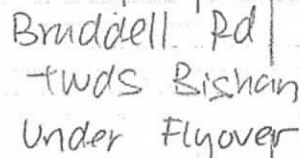 Braddell Rd
twds Bishan
Under Flyover